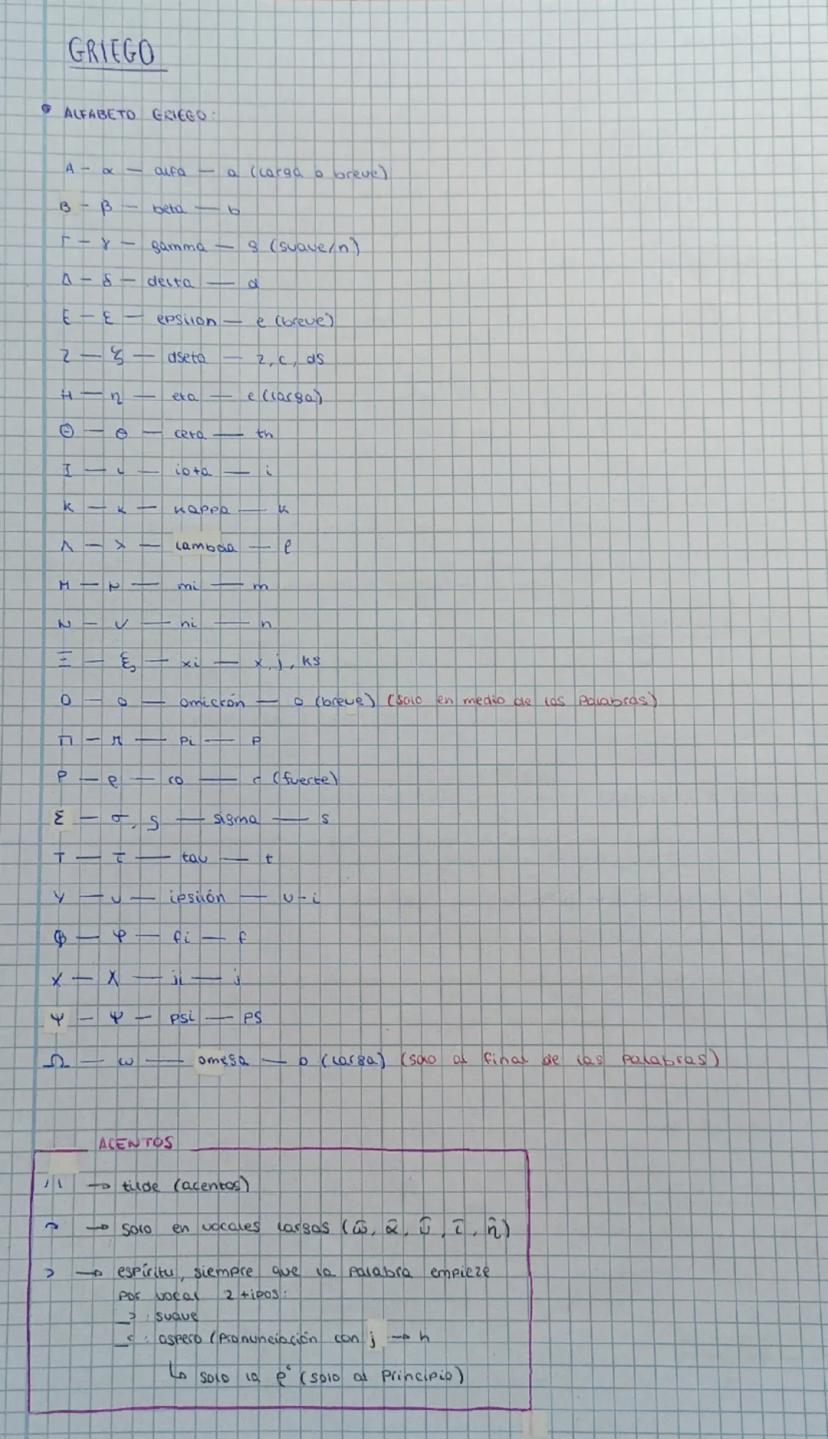 GRIEGO
• ALFABETO GRIEGO:
A - α - alfa - a (larga o breve)
B - β - beta - b
Γ - γ - gamma - g (suave/n)
Δ - δ - delta - d
Ε - ε - epsilon - e (breve)
Z - ζ - dseta - z, c, ds
H - η - eta - e (larga)
Θ - θ - ceta - th
I - ι - iota - i
K - κ - kappa - k
Λ - λ - lambda - l
M - μ - mi - m
N - ν - ni - n
Ξ - ξ - xi - x, j, ks
O - o - omicrón - o (breve) (solo en medio de las palabras)
Π - π - pi - p
P - ρ - ro - r (fuerte)
Σ - σ, ς - sigma - s
T - τ - tau - t
Y - υ - ipsilón - u-i
Φ - φ - fi - f
X - χ - ji - j
Ψ - ψ - psi - ps
Ω - ω - omega - o (larga) (solo al final de las palabras)
ACENTOS
/ \ → tilde (acentos)
~ → solo en vocales largas (ω̃, α̃, υ̃, ι̃, η̃)
᾿ → espíritu, siempre que la palabra empieze
por vocal 2 tipos:
_᾿: suave
_῾: aspero (pronunciación con j → h
↳ solo la ῥ (solo al principio)